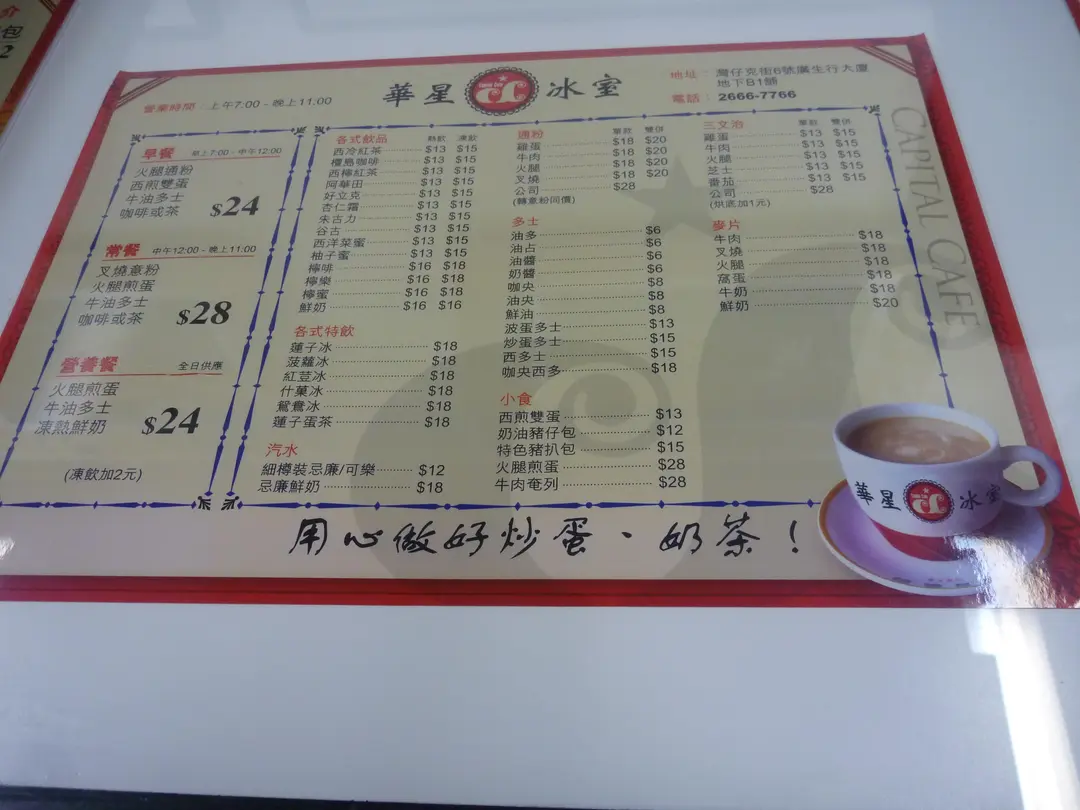 介
包
2
營業時間：上午7:00 - 晚上11:00
華星冰室
地址：灣仔克街6號廣生行大廈
地下B1舖
電話：2666-7766
早餐 早上7:00 - 中午12:00
火腿通粉
西煎雙蛋
牛油多士
咖啡或茶 $24
常餐 中午12:00 - 晚上11:00
叉燒意粉
火腿煎蛋
牛油多士
咖啡或茶 $28
營養餐 全日供應
火腿煎蛋
牛油多士
凍熱鮮奶 $24
(凍飲加2元)
各式飲品 熱飲 凍飲
西冷紅茶 $13 $15
檀島咖啡 $13 $15
西檸紅茶 $13 $15
阿華田 $13 $15
好立克 $13 $15
杏仁霜 $13 $15
朱古力 $13 $15
谷古 $13 $15
西洋菜蜜 $13 $15
柚子蜜 $13 $15
檸啡 $16 $18
檸樂 $16 $18
檸蜜 $16 $18
鮮奶 $16 $16
各式特飲
蓮子冰 $18
菠蘿冰 $18
紅荳冰 $18
什菓冰 $18
鴛鴦冰 $18
蓮子蛋茶 $18
汽水
細樽裝忌廉/可樂 $12
忌廉鮮奶 $18
通粉 單款 雙併
雞蛋 $18 $20
牛肉 $18 $20
火腿 $18 $20
叉燒 $18 $20
公司 $28
(轉意粉同價)
多士
油多 $6
油占 $6
油醬 $6
奶醬 $6
咖央 $8
油央 $8
鮮油 $8
波蛋多士 $13
炒蛋多士 $15
西多士 $15
咖央西多 $18
小食
西煎雙蛋 $13
奶油豬仔包 $12
特色豬扒包 $15
火腿煎蛋 $28
牛肉奄列 $28
三文治 單款 雙併
雞蛋 $13 $15
牛肉 $13 $15
火腿 $13 $15
芝士 $13 $15
番茄 $13 $15
公司 $28
(烘底加1元)
麥片
牛肉 $18
叉燒 $18
火腿 $18
窩蛋 $18
牛奶 $18
鮮奶 $20
CAPITAL CAFE
華星冰室
用心做好炒蛋、奶茶！